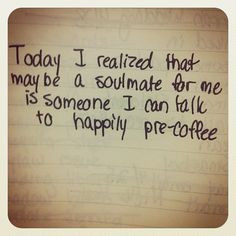 Today I realized that
maybe a soulmate for me
is someone I can talk
to happily pre-coffee